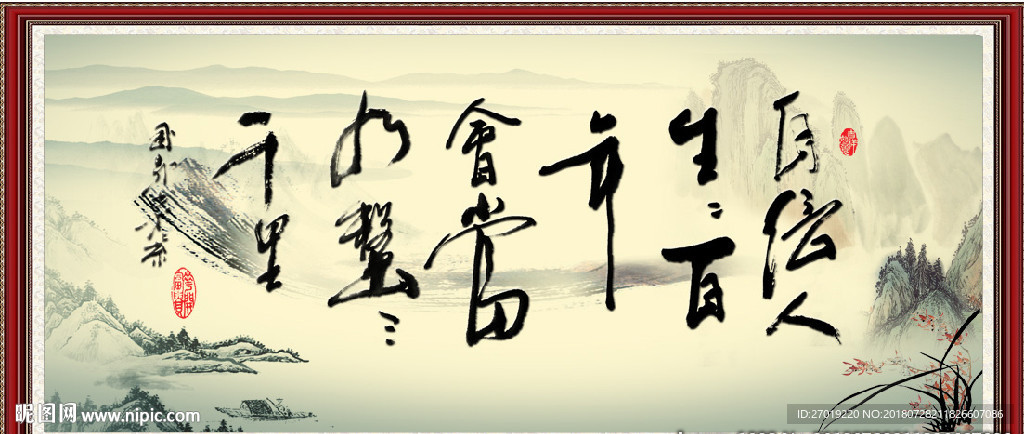 自信人
生二百
年
會當
水擊三
千里
昵图网 www.nipic.com
ID:27019220 NO:20180728211826607086